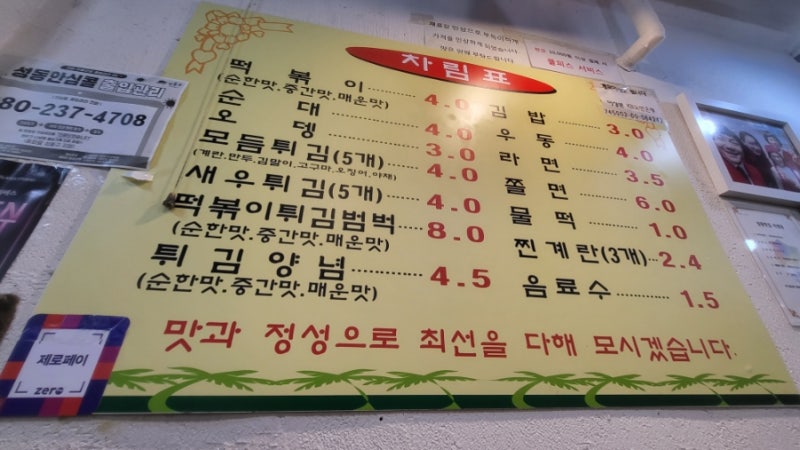 차림표
떡볶이 4.0
(순한맛.중간맛.매운맛)
순대 4.0
오뎅 3.0
모듬튀김(5개) 4.0
(계란,만두,김말이,고구마,오징어,야채)
새우튀김(5개) 4.0
떡볶이튀김범벅 8.0
(순한맛.중간맛.매운맛)
튀김양념 4.5
(순한맛.중간맛.매운맛)
김밥 3.0
우동 4.0
라면 3.5
쫄면 6.0
물떡 1.0
찐계란(3개) 2.4
음료수 1.5
맛과 정성으로 최선을 다해 모시겠습니다.
80-237-4708
쿨피스 서비스
제로페이
zero